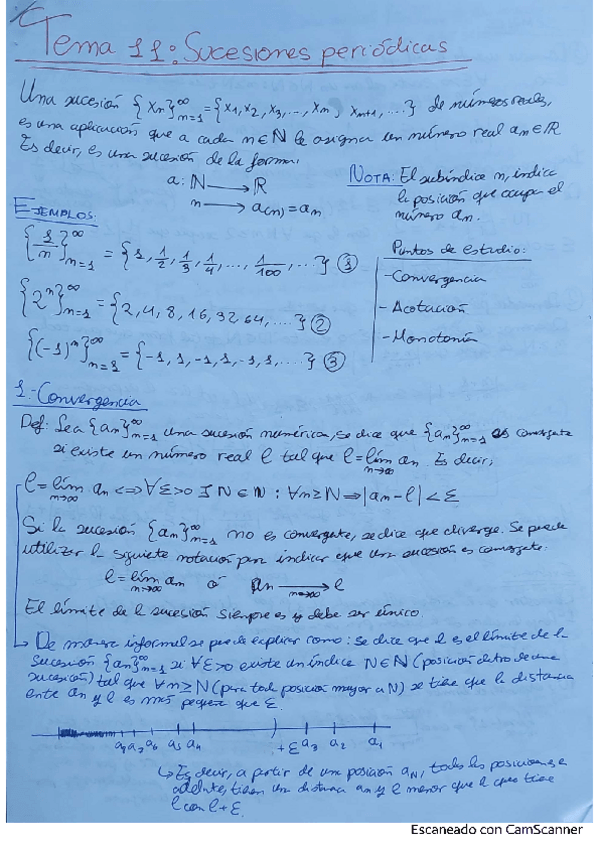 Tema 11: Sucesiones periódicas
Una sucesión {xₙ}ₙ₌₁^∞ = {x₁, x₂, x₃, ..., xₙ, xₙ₊₁, ...} de números reales,
es una aplicación que a cada n∈ℕ le asigna un número real aₙ∈ℝ
Es decir, es una sucesión de la forma:
a: ℕ ⟶ ℝ
n ⟶ a(n) = aₙ
NOTA: El subíndice n, indica
la posición que ocupa el
número aₙ.
EJEMPLOS:
{1/n}ₙ₌₁^∞ = {1, 1/2, 1/3, 1/4, ..., 1/100, ...} ①
{2ⁿ}ₙ₌₁^∞ = {2, 4, 8, 16, 32, 64, ...} ②
{(-1)ⁿ}ₙ₌₁^∞ = {-1, 1, -1, 1, -1, 1, ...} ③
Puntos de estudio:
- Convergencia
- Acotación
- Monotonía
1.- Convergencia
Def: Sea {aₙ}ₙ₌₁^∞ una sucesión numérica, se dice que {aₙ}ₙ₌₁^∞ es convergente
si existe un número real l tal que l = lim n→∞ aₙ. Es decir:
l = lim n→∞ aₙ <=> ∀ε>0 ∃ N∈ℕ : ∀n≥N ⟹ |aₙ - l| < ε
Si la sucesión {aₙ}ₙ₌₁^∞ no es convergente, se dice que diverge. Se puede
utilizar la siguiente notación para indicar que una sucesión es convergente:
l = lim n→∞ aₙ ó aₙ ⟶ n→∞ l
El límite de la sucesión siempre es y debe ser único.
De manera informal se puede explicar como: se dice que l es el límite de la
sucesión {aₙ}ₙ₌₁^∞ si ∀ε>0 existe un índice N∈ℕ (posición dentro de una
sucesión) tal que ∀n≥N (para toda posición mayor a N) se tiene que la distancia
ente aₙ y l es más pequeña que ε.
a₅ a₄ ) +ε a₃ a₂ a₁
↳ Es decir, a partir de una posición a_N, todas las posiciones en
adelante, tienen una distancia aₙ y l menor que la que tiene
l con l+ε.
Escaneado con CamScanner